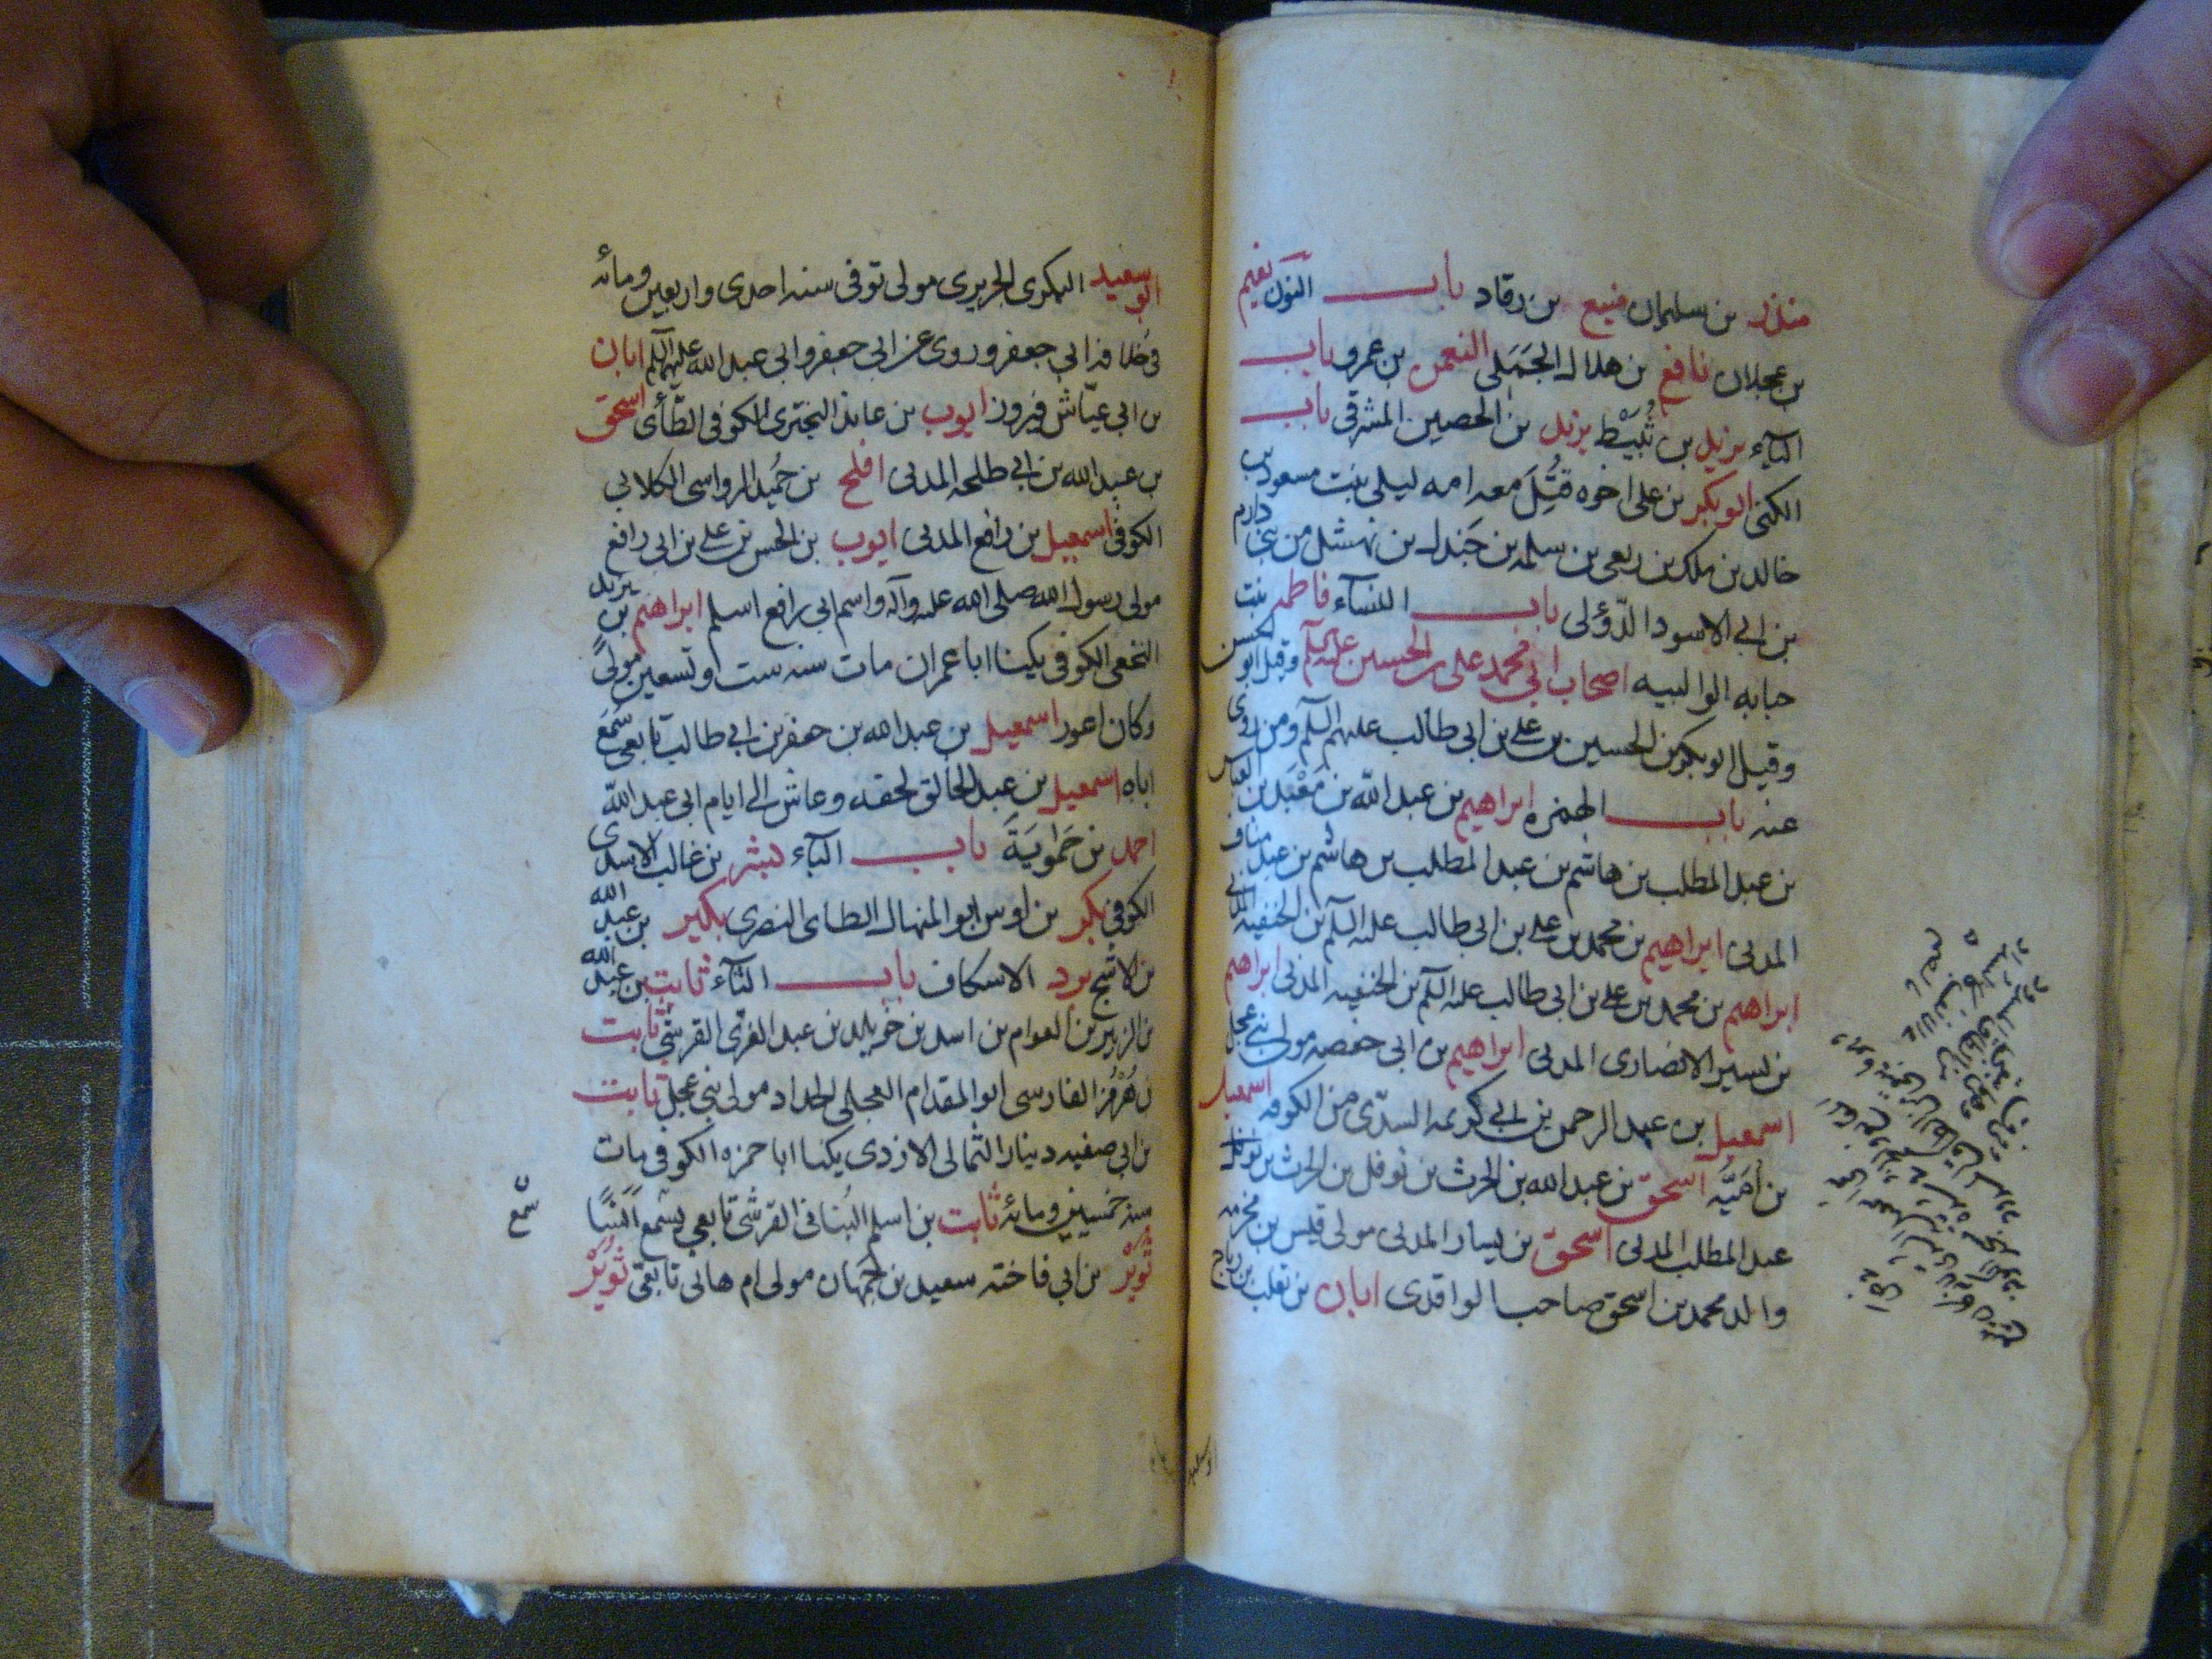 منذر بن سليمان منيع بن رقاد باب النون نعيم
بن عجلان نافع بن هلال الجملي النعمن بن عمرو باب
الياء يزيد بن ثُبَيْط يزيد بن الحصين المشرقي باب
الكنى ابو بكر بن علي اخوه قُتِلَ معه امه ليلى بنت مسعود بن
خالد بن ملك بن ربعي بن سلمه بن جندل بن نهشل من بني دارم
بن ابي الاسود الدؤلي باب النساء فاطمه بنت
حبابه الوالبيه اصحاب ابي محمد علي بن الحسين عليه السلم وقيل ابو الحسن
وقيل ابو بكر بن الحسين بن علي بن ابي طالب عليهم السلم ومن روى
عنه باب الهمزه ابراهيم بن عبد الله بن مَعْبَد بن العباس
بن عبد المطلب بن هاشم بن عبد المطلب بن هاشم بن عبد مناف
المدني ابراهيم بن محمد بن علي بن ابي طالب عليه السلم بن الحنفيه المدني
ابراهيم بن محمد بن علي بن ابي طالب عليه السلم بن الحنفيه المدني ابراهيم
بن بسير الانصارى المدني ابراهيم بن ابي حفصه مولى بني عجل
اسمعيل بن عبد الرحمن بن ابي كريمه السدّي من الكوفه اسمعيل
بن اميّه اسحق بن عبد الله بن الحرث بن نوفل بن الحرث بن نوفل
عبد المطلب المدني اسحق بن يسار المدني مولى قيس بن مخرمه
والد محمد بن اسحق صاحب الواقدى ابان بن تغلب بن رباح
ابو سعيد البكرى الجريرى مولى توفى سنه احدى واربعين ومائه
في خلافه ابي جعفر وروى عن ابي جعفر وابي عبد الله عليهما السلم ابان
بن ابي عيّاش فيروز ايوب بن عايذ البخترى الكوفي الطائى اسحق
بن عبد الله بن ابي طلحه المدني افلح بن حُميد الرواسى الكلابي
الكوفي اسمعيل بن رافع المدني ايوب بن الحسن بن علي بن ابي رافع
مولى رسول الله صلى الله عليه وآله واسم ابي رافع اسلم ابراهيم بن يزيد
النخعى الكوفي يكنا ابا عمران مات سنه ست وتسعين مولىً
وكان اعور اسمعيل بن عبد الله بن جعفر بن ابي طالب تابعى سَمَعَ
اباه اسمعيل بن عبد الخالق لحقه وعاش الى ايام ابي عبد الله
احمد بن حَمُّويَةَ باب الباء بشر بن غالب الاسدى
الكوفي بكر بن اوس ابو المنهال الطاى البصرى بكير بن عبد الله
بن الاشج برد الاسكاف باب الثاء ثابت بن عبد الله
بن الزبير بن العوام بن اسد بن خويلد بن عبد العزّى القرشي ثابت
بن هُرْمُز الفارسى ابو المقدام العجلى الحداد مولى بني عجل ثابت
بن ابي صفيه دينار الثمالى الازدى يكنا ابا حمزه الكوفي مات
سنه خمسين ومائه ثابت بن اسلم البُنانى القرشى تابعي يسمع انسًا
سمع
ثُوَيْر بن ابي فاخته سعيد بن جمهان مولى ام هاني تابعىّ ثُوَيْر